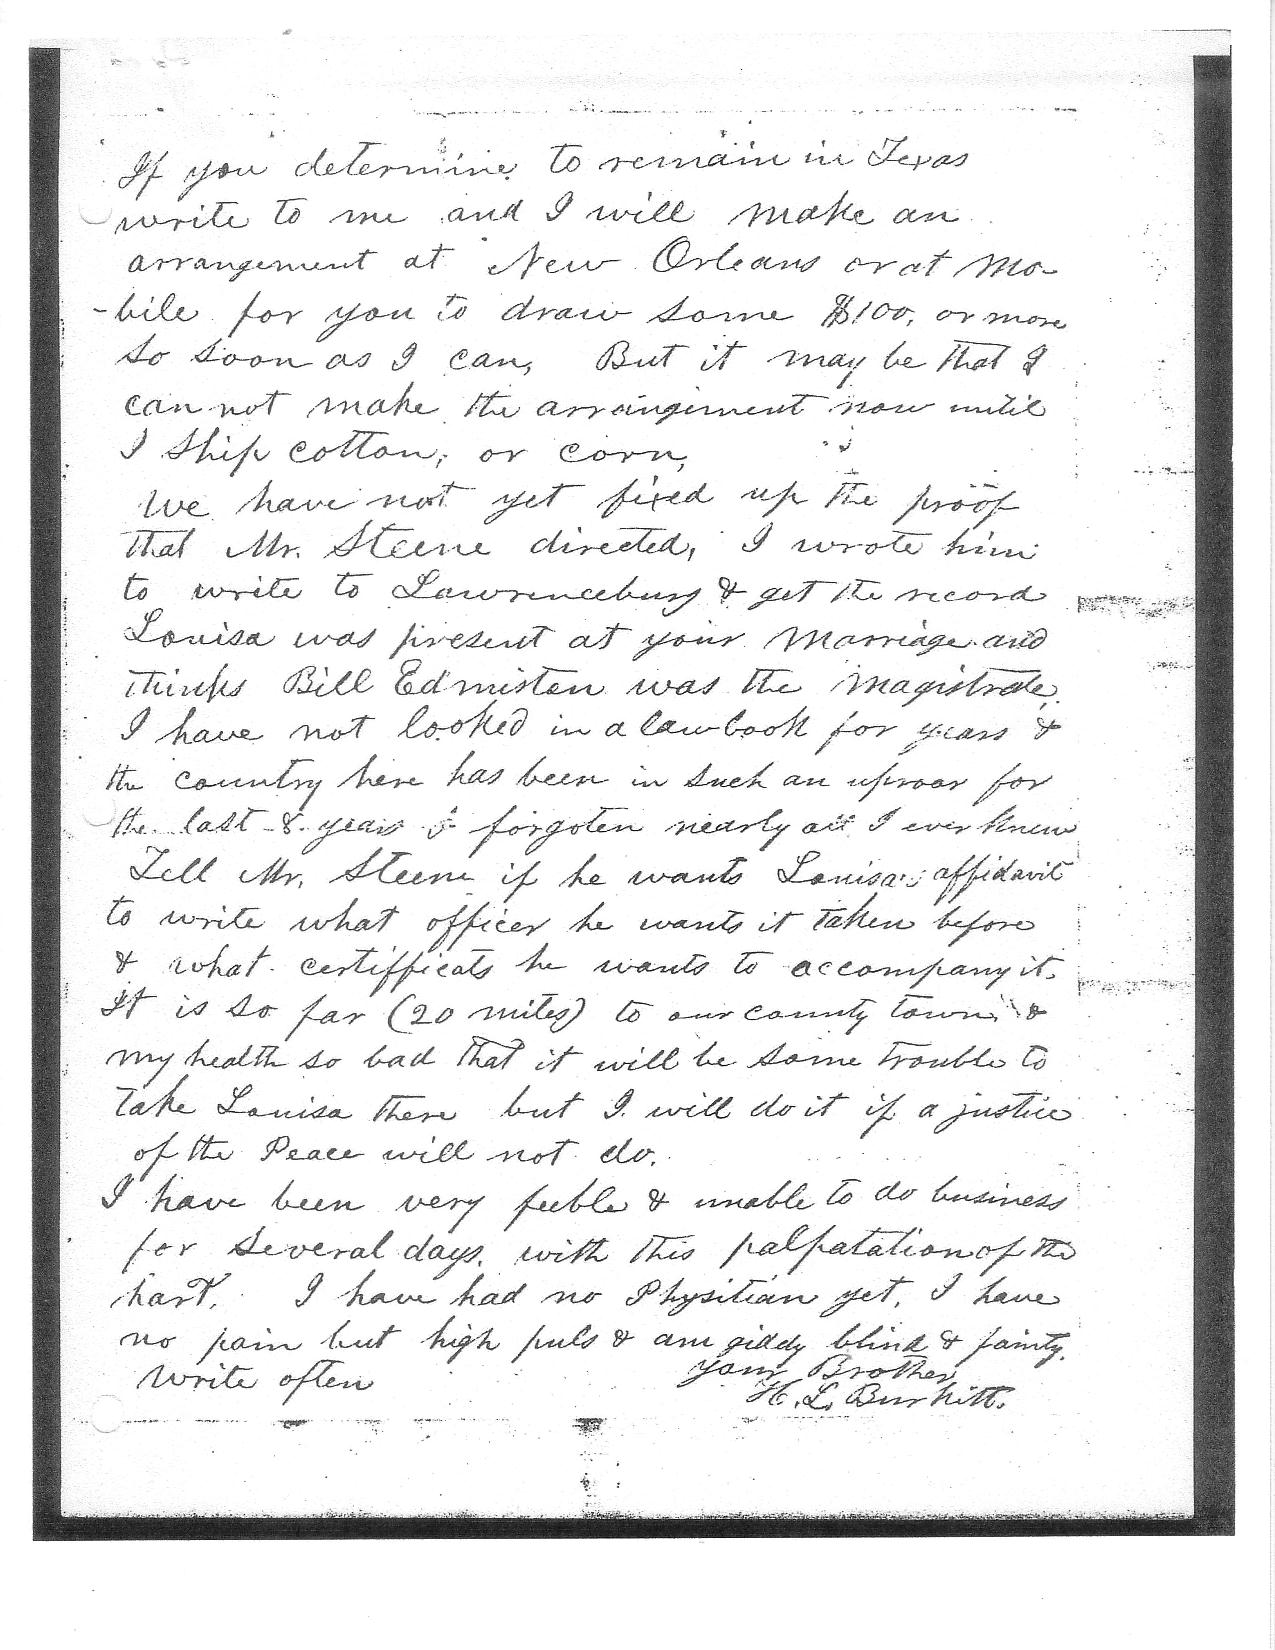 If you determine to remain in Texas
write to me and I will make an
arrangement at New Orleans or at Mo-
-bile for you to draw some $100, or more
so soon as I can, But it may be that I
can not make the arrangement now until
I ship cotton, or corn,
We have not yet fixed up the proof
that Mr. Steene directed, I wrote him
to write to Lawrenceburg & get the record
Louisa was present at your marriage and
thinks Bill Edmisten was the magistrate,
I have not looked in a law book for years &
the country here has been in such an uproar for
the last 8 years I forgoten nearly all I ever knew
Tell Mr. Steene if he wants Louisa's affidavit
to write what officer he wants it taken before
& what certifficats he wants to accompany it.
It is so far (20 miles) to our county town &
my health so bad that it will be some trouble to
take Louisa there but I will do it if a justice
of the Peace will not do.
I have been very feeble & unable to do business
for several days, with this palpatation of the
hart. I have had no Physitian yet, I have
no pain but high puls & am giddy blind & fainty.
Write often your Brother
H. L. Burkitt.